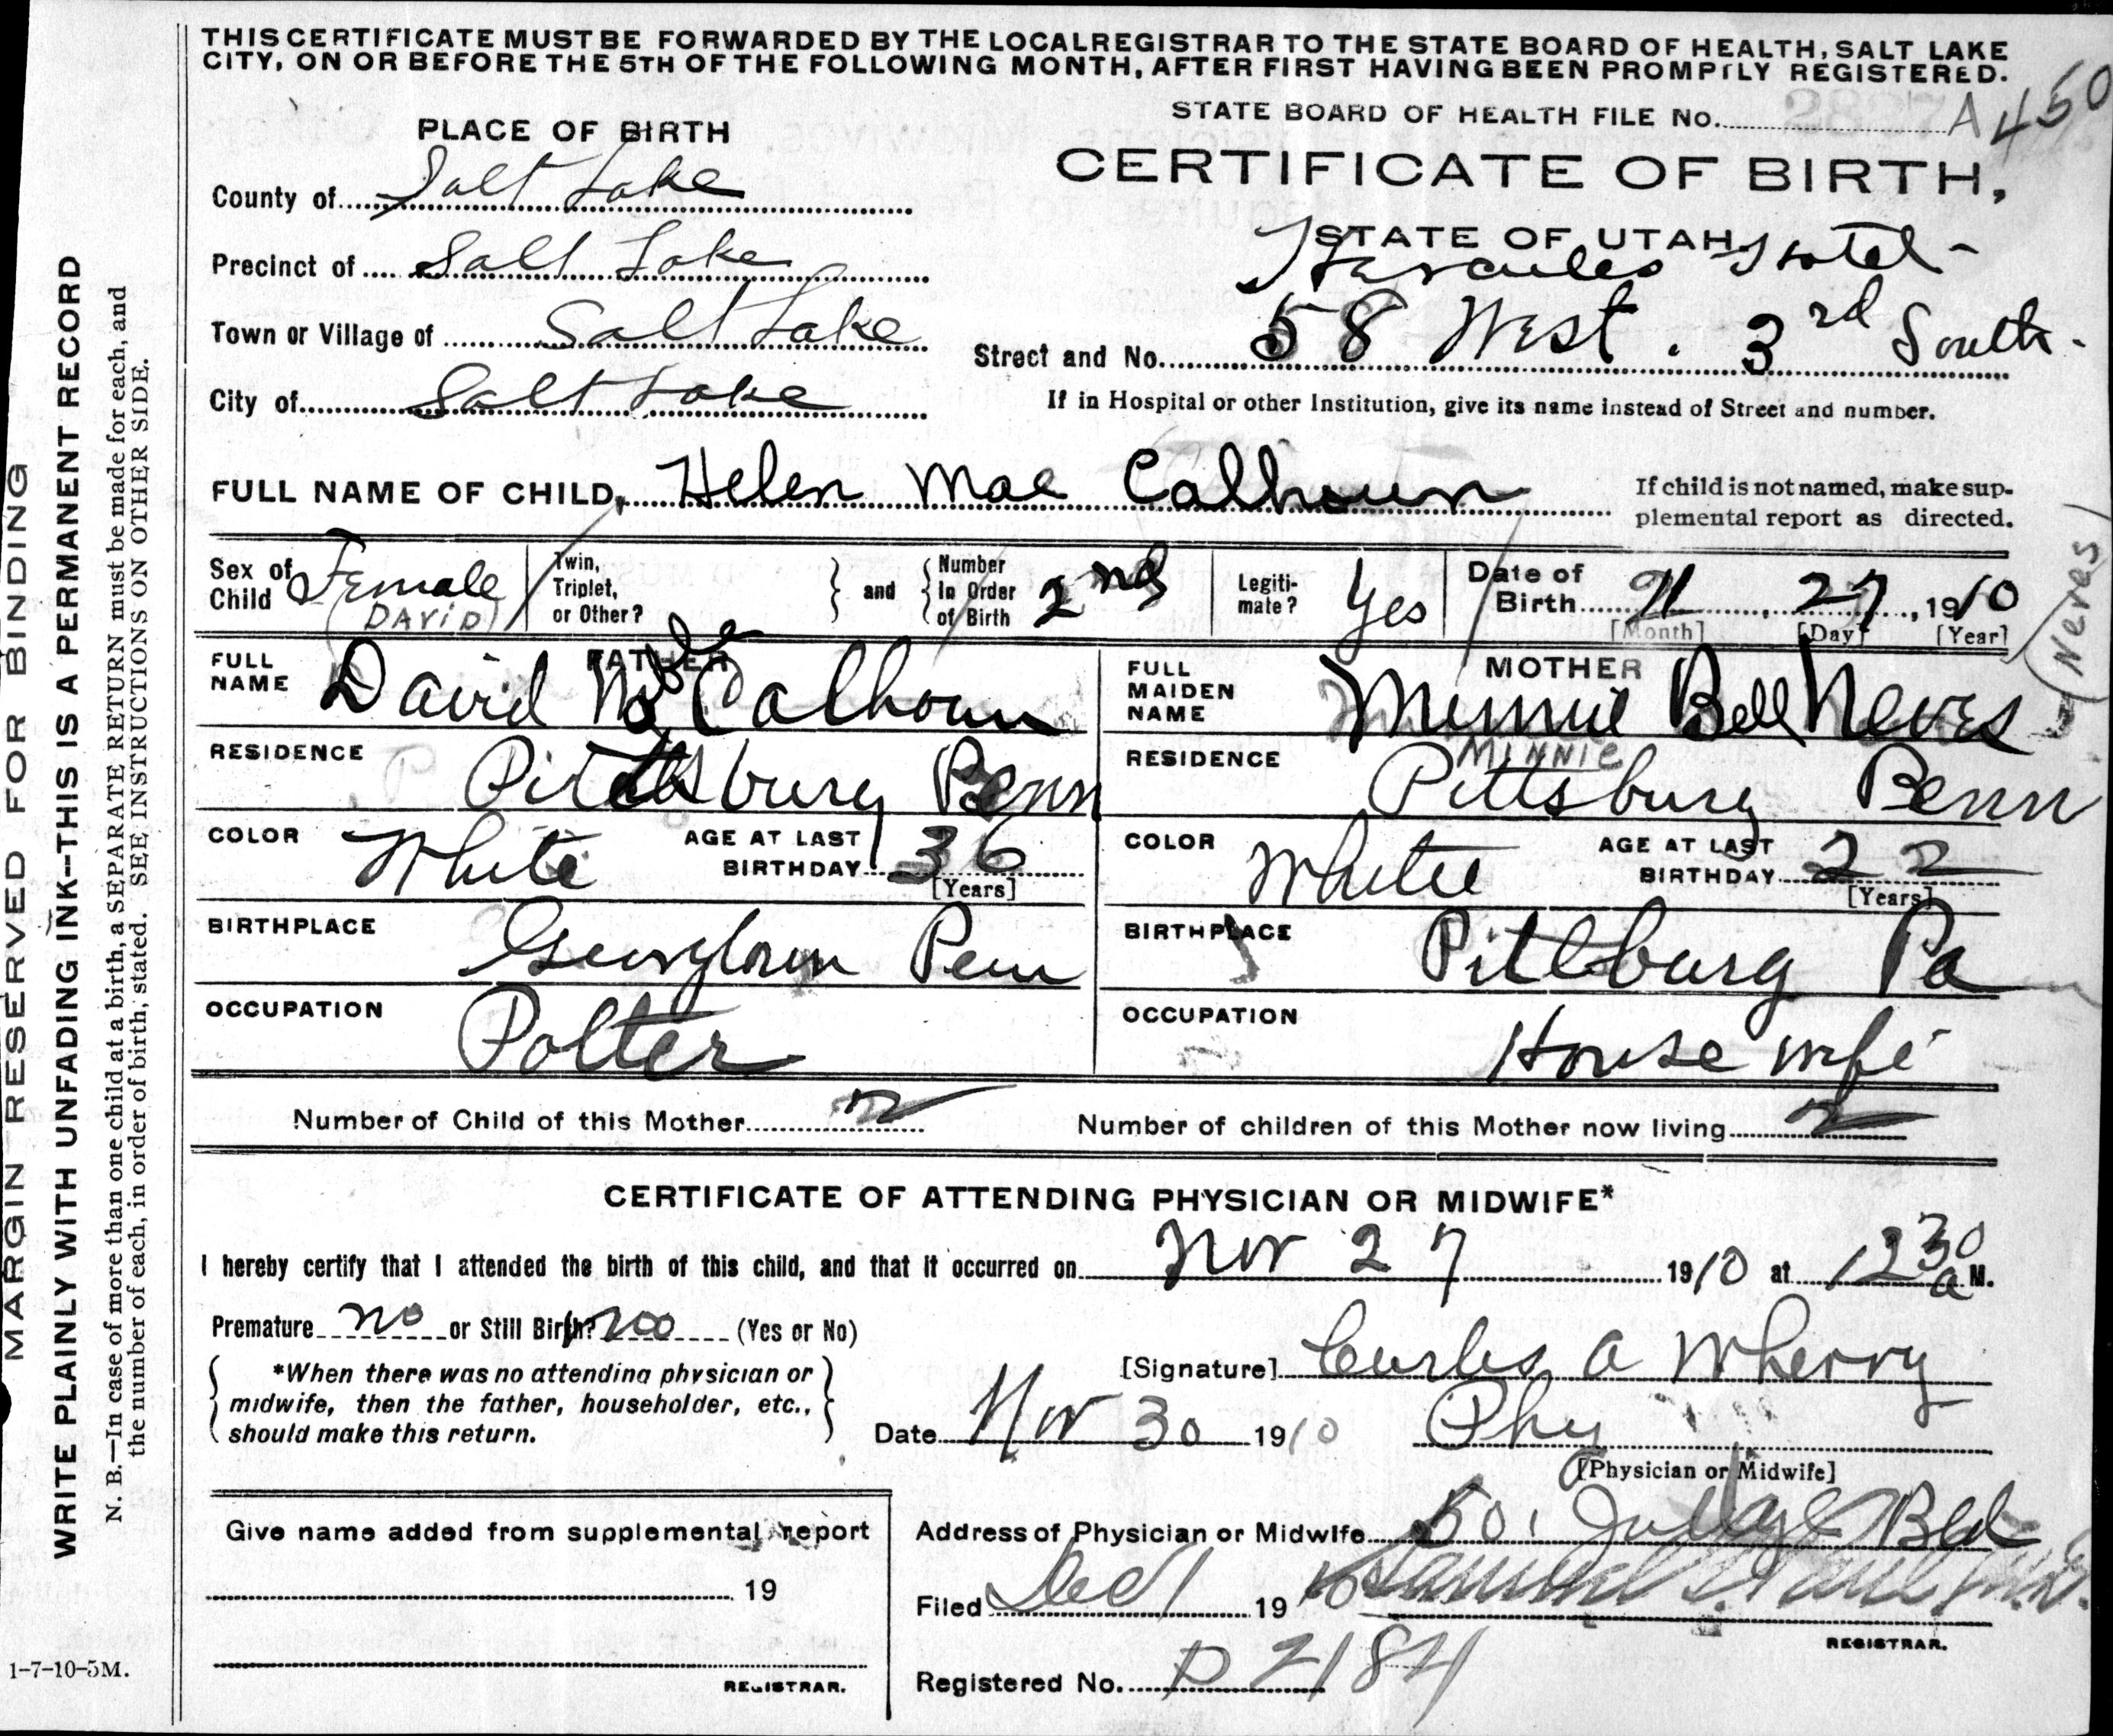 THIS CERTIFICATE MUST BE FORWARDED BY THE LOCAL REGISTRAR TO THE STATE BOARD OF HEALTH, SALT LAKE
CITY, ON OR BEFORE THE 5TH OF THE FOLLOWING MONTH, AFTER FIRST HAVING BEEN PROMPTLY REGISTERED.
STATE BOARD OF HEALTH FILE No. A 450
PLACE OF BIRTH
CERTIFICATE OF BIRTH,
STATE OF UTAH
County of Salt Lake
Hercules Hotel -
Precinct of Salt Lake
Town or Village of Salt Lake
Street and No. 58 West. 3rd South.
City of Salt Lake
If in Hospital or other Institution, give its name instead of Street and number.
FULL NAME OF CHILD, Helen Mae Calhoun
If child is not named, make sup-
plemental report as directed.
Sex of Child Female
Twin, Triplet, or Other? and Number In Order of Birth 2nd
Legiti-mate? Yes
Date of Birth 11, 27, 1910
[Month] [Day] [Year]
(DAVID)
(Neves)
FATHER
FULL NAME David Calhoun
MOTHER
FULL MAIDEN NAME Minnie Bell Neves
MINNIE
RESIDENCE Pittsburg Penn
RESIDENCE Pittsburg Penn
COLOR White AGE AT LAST BIRTHDAY 36 [Years]
COLOR White AGE AT LAST BIRTHDAY 22 [Years]
BIRTHPLACE Georgtown Penn
BIRTHPLACE Pittburg Pa
OCCUPATION Potter
OCCUPATION House wife
Number of Child of this Mother 2
Number of children of this Mother now living 2
CERTIFICATE OF ATTENDING PHYSICIAN OR MIDWIFE*
I hereby certify that I attended the birth of this child, and that it occurred on Nov 27 1910 at 12 30 a M.
Premature no or Still Birth? no (Yes or No)
*When there was no attending physician or
midwife, then the father, householder, etc.,
should make this return.
[Signature] Curles A Wherry
Date Nov 30 1910 Phy
[Physician or Midwife]
Give name added from supplemental report
19
REGISTRAR.
Address of Physician or Midwife 501 Judge Bld
Filed Dec 1 1910 Samuel G. Paul M.D.
REGISTRAR.
Registered No. D 2184
MARGIN RESERVED FOR BINDING
WRITE PLAINLY WITH UNFADING INK—THIS IS A PERMANENT RECORD
N. B.—In case of more than one child at a birth, a SEPARATE RETURN must be made for each, and
the number of each, in order of birth, stated. SEE INSTRUCTIONS ON OTHER SIDE.
1-7-10-5M.